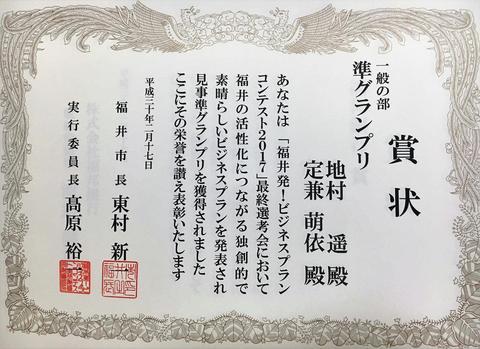 賞状
一般の部
準グランプリ
地村 遥 殿
定兼 萌依 殿
あなたは 「福井発！ビジネスプラン
コンテスト2017」最終選考会において
福井の活性化につながる独創的で
素晴らしいビジネスプランを発表され
見事準グランプリを獲得されました
ここにその栄誉を讃え表彰いたします
平成三十年二月十七日
福井市長 東村 新一
実行委員長 髙原 裕一